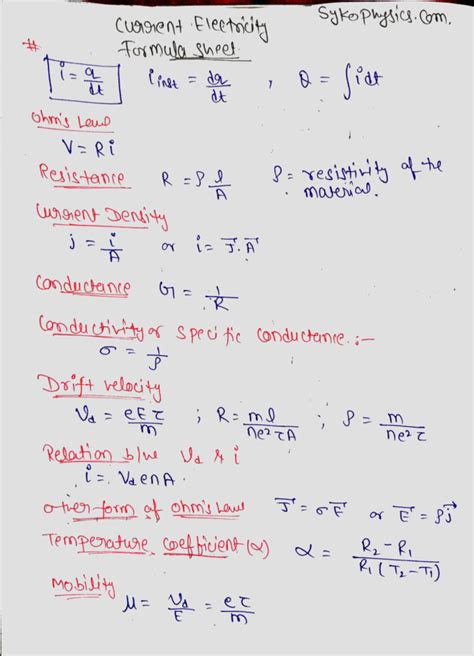 Current Electricity Sykophysics.com.
Formula sheet
# i = q/dt i_inst = dq/dt , Q = ∫idt
Ohm's Law
V = Ri
Resistance R = ρ l/A ρ = resistivity of the material.
Current Density
j = i/A or i = J⃗.A⃗
Conductance G = 1/R
Conductivity or Specific conductance :-
σ = 1/ρ
Drift velocity
V_d = eEτ/m ; R = ml/ne²τA ; ρ = m/ne²τ
Relation b/w V_d & i
i = V_d enA.
other form of ohm's Law J⃗ = σE⃗ or E⃗ = ρj⃗
Temperature coefficient (α) α = R₂-R₁/R₁(T₂-T₁)
Mobility
μ = V_d/E = eτ/m